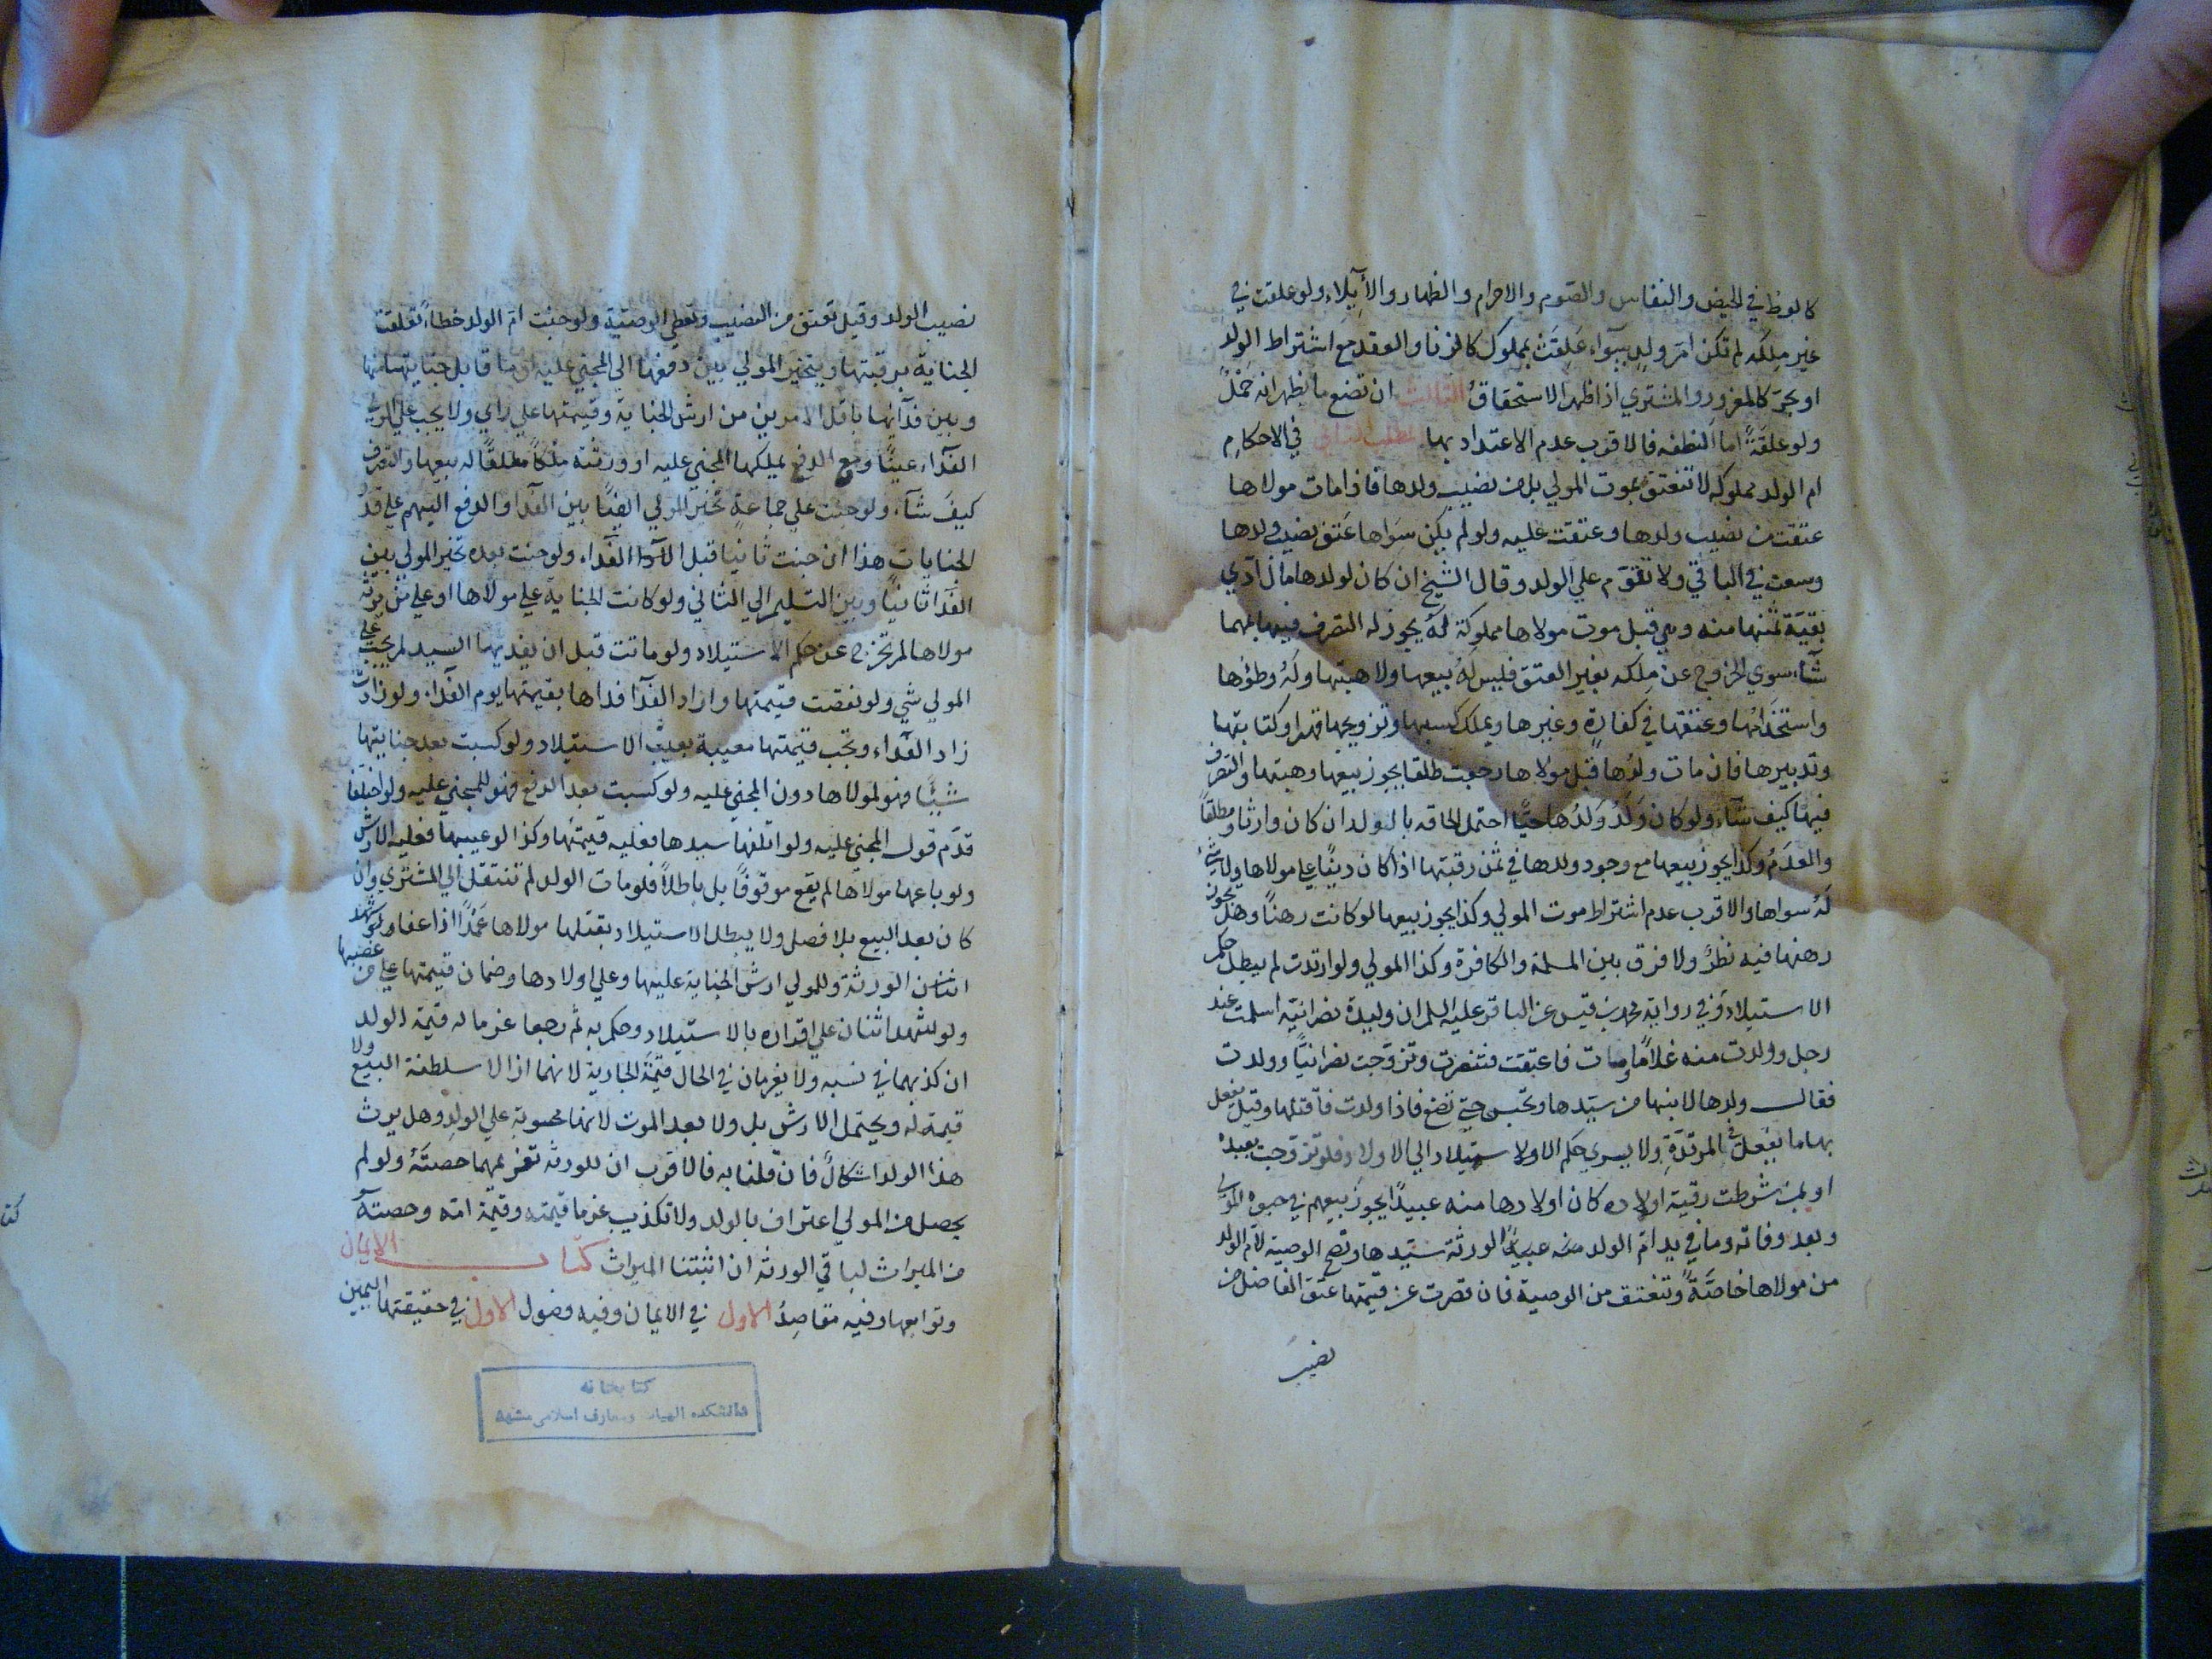 كالوطئ في الحيض والنفاس والصّوم والاحرام والظهار والأيلاء ولو علقت في
غير مِلكه لم تكن امّ ولدٍ سوآء عَلِقَتْ بمملوك كالزنا والعقد مع اشتراط الولد
او بحرّ كالمغرور والمشتري اذا ظهر الاستحقاقُ الثالث ان تضع ما يظهر انه حَمْلٌ
ولو علقَةً اما النطفه فالاقرب عدم الاعتداد بها المطلب الثاني في الاحكام
ام الولد مملوكه لا تنعتق بموت المولي بل من نصيب ولدها فاذا مات مولاها
عتقت من نصيب ولدها وعتقت عليه ولو لم يكن سِوَاها عَتق نصيب ولدها
وسعت في الباقي ولا تقوّم علي الولد وقال الشيخ ان كان لولدها مال أدّي
بقيّة ثمنها منه وهي قبل موت مولاها مملوكة لهُ يجوز له التصرف فيها بمهما
شآء سوي الخروج عن مِلكه بغير العتق فليس لهُ بيعها ولا هبتها ولَهُ وطؤها
واستخدامُها وعتقها في كفارة وغيرها ويملك كسبها وتزويجها قهرا وكتابتها
وتدبيرها فان مات ولدُها قبل مولاها رجعت طلقا يجوز بيعها وهبتها والتصرف
فيها كيف شآء ولو كان وَلَدُ وَلدُها حيًّا احتمل الحاقه بالولد ان كان وارثا ومطلقاً
والعدَمُ وكذا يجوز بيعها مع وجود ولدها في ثمن رقبتها اذا كان دينًا علي مولاها ولا شئ
لَهُ سواها والاقرب عدم اشتراط موت المولي وكذا يجوز بيعها لو كانت رهنًا وهل يجوز
رهنها فيه نظرٌ ولا فرق بين المسلمة والكافرة وكذا المولي ولو ارتدت لم يبطل حكم
الاستيلاد وفي رواية محمد بن قيس عن الباقر عليه السلم ان وليدة نصرانيّة اسلمت عند
رجل وولدت منه غلامًا ومات فاعتقت فتنصرت وتزوّجت نصرانيًّا وولدت
فقال ولدها لابنها من سيّدها وتحبس حتي تضع فاذا ولدت فاقتلها وقيل يفعل
بها ما يفعل في المرتدّةِ ولا يسري حكم الاولا ستيلاد الي الاولاد فلو تزوّجت بعبدٍ
او بمن شرطت رقية اولاده كان اولادها منه عبيدًا يجوز بيعهم في حيوة المولي
وبعد وفاته وما في يد امّ الولد منه عبيدًا لورثة سيّدها وتصح الوصية لامّ الولد
من مولاها خاصّةً وتنعتق من الوصية فان قصرت عن قيمتها عتق الفاضل من
نصيب
نصيب الولد وقيل تعتق من النصيب وتعطي الوصيّة ولو جنت امّ الولد خطاءً تعلقت
الجناية برقبتها ويتخير المولي بين دفعها الي المجني عليه او ما قابل جنايتها منها
وبين فدآئها باقل الامرين من ارش الجناية وقيمتها علي راي ولا يجب علي المولي
الفدآء عينًا ومع الدفع يملكها المجني عليه او ورثته مِلكًا مطلقًا له بيعها والتصرف
كيفَ شآء ولو جنت علي جماعةٍ تخير المولي ايضًا بين الفدآ والدفع اليهم علي قدر
الجنايات هذا ان جنت ثانيا قبل الفدآء ولو جنت بعده تخير المولي بين
الفدآ ثانيًا وبين التسليم الي الثاني ولو كانت الجناية علي مولاها او علي من يرثه
مولاها لم تخرج عن حكم الاستيلاد ولو ماتت قبل ان يفديها السيد لم يجب علي
المولي شي ولو نقصت قيمتها واراد الفدآ فداها بقيمتها يوم الفدآء ولو زادت
زاد الفدآء وتجب قيمتها معيبة بعيب الاستيلاد ولو كسبت بعد جنايتها
شيئًا فهو لمولاها دون المجني عليه ولو كسبت بعد الدفع فهو للمجني عليه ولو اختلفا
قدّم قول المجني عليه ولو اتلفها سيدها فعليه قيمتها وكذا لو عيبها فعليه الارش
ولو باعها مولاها لم يقع موقوفًا بل باطلاً فلو مات الولد لم تنتقل الي المشتري وان
كان بعد البيع بلا فصل ولا يبطل الاستيلاد بقتلها مولاها عَمْدًا اذا عفا ولو شهد
اثنان الورثة وللمولي ارش الجناية عليها وعلي اولادها وضمان قيمتها علي من غصبها
ولو شهد اثنان علي اقراره بالاستيلاد وحكم به ثم رجعا غرما له قيمة الولد
ان كذبهما في نسبه ولا يغرمان في الحال قيمَة الجارية لانهما ازالا سلطنة البيع ولا
قيمة له ويحتمل الارش بل ولا بعد الموت لانها محسوبة علي الولد وهل يرث
هذا الولد اشكالٌ فان قلنا به فالاقرب ان للورثه تغريمهما حصتَهُ ولو لم
يحصل من المولي اعتراف بالولد ولا تكذيب غرما قيمته وقيمة امّه وحصته
من الميراث لباقي الورثه ان اثبتنا الميراث كتاب الايمان
وتوابعها وفيه مقاصدُ الاول في الايمان وفيه فصول الاول في حقيقتها اليمين
كتابخانه
دانشكده الهيات ومعارف اسلامى مشهد